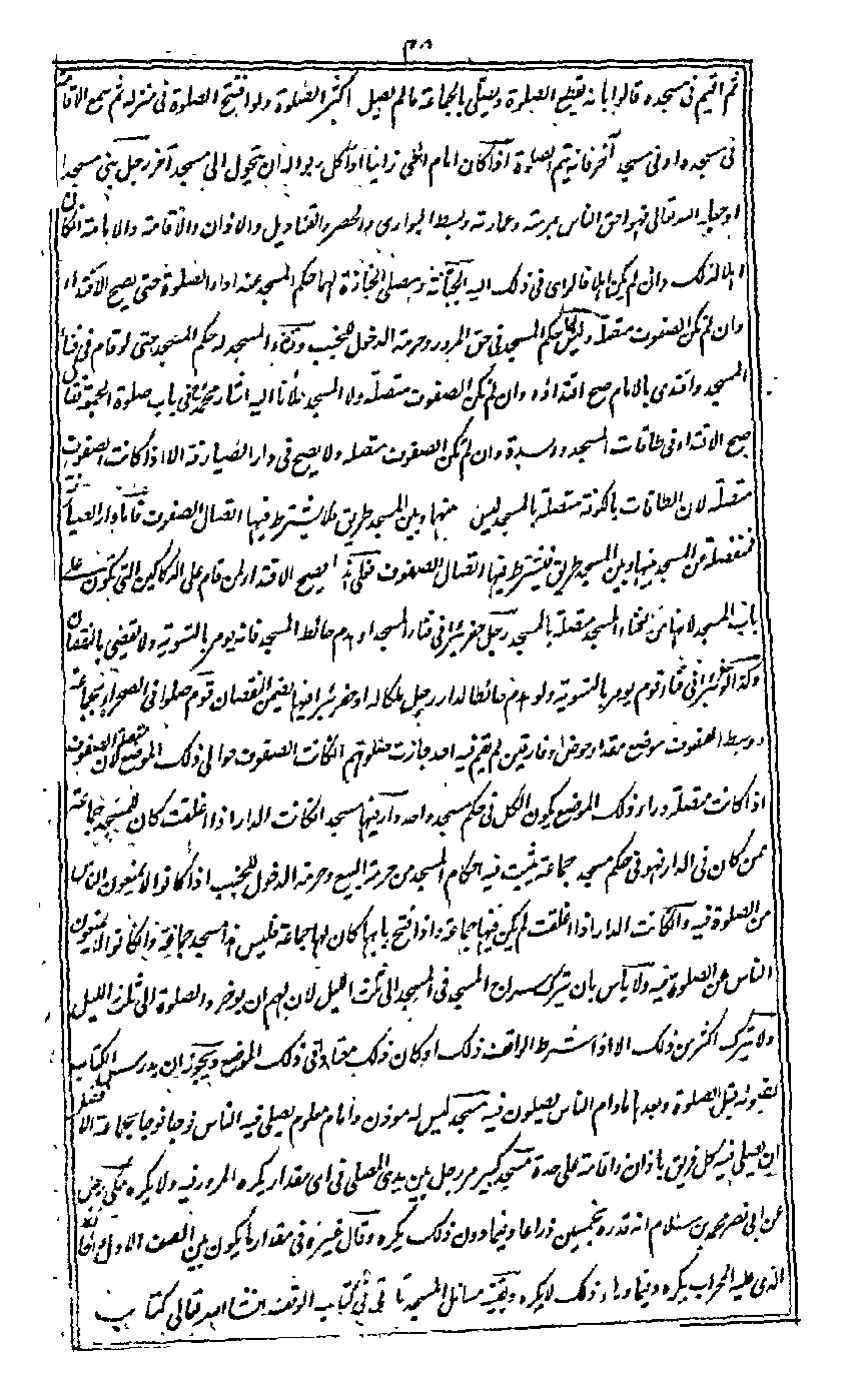 ٣٨
ثم اقيم فى مسجده قالوا بانه يقطع الصلوة ويصلى بالجماعة مالم يصل اكثر الصلوة ولو افتتح الصلوة فى منزله ثم سمع الاقامة
فى مسجده او فى مسجد آخر فانه يتم الصلوة اذا كان امام الحى زانيا او آكل ربوا له ان يتحول الى مسجد آخر رجل بنى مسجدا
وجعله لله تعالى فهو احق الناس بمرمته وعمارته وبسط البوارى والحصر والقناديل والاذان والاقامة والامامة ان كان
اهلا لذلك وان لم يكن اهلا فالراى فى ذلك اليه الجبانة ومصلى الجنازة لهما حكم المسجد عند اداء الصلوة حتى يصح الاقتداء
وان لم تكن الصفوف متصلة وليس لهما حكم المسجد فى حق المرور وحرمة الدخول للجنب وفناء المسجد له حكم المسجد حتى لو قام فى فناء
المسجد واقتدى بالامام صح اقتداؤه وان لم تكن الصفوف متصلة ولا المسجد ملآنا اليه اشار محمد فى باب صلوة الجمعة فقال
يصح الاقتداء فى طاقات المسجد وسدة وان لم تكن الصفوف متصلة ولا يصح فى دار الصيارفة الا اذا كانت الصفوف
متصلة لان الطاقات بالكوفة متصلة بالمسجد ليس بينها وبين المسجد طريق فلا يشترط فيها اتصال الصفوف فاما دار الصيارفة
فمنفصلة عن المسجد بينها وبين المسجد طريق فيشترط فيها اتصال الصفوف فعلى هذا يصح الاقتداء لمن قام على الدكاكين التى تكون على
باب المسجد لانها من فناء المسجد متصلة بالمسجد رجل حفر بئرا فى فناء المسجد او هدم حائط المسجد فانه يؤمر بالتسوية ولا يقضى بالنقصان
وكذا لو حفر بئرا فى فناء قوم يؤمر بالتسوية ولو هدم حائطا لدار رجل ملكا له او حفر بئرا فيها يضمن النقصان قوم صلوا فى الصحراء بجماعة
ووسط الصفوف موضع مقدار حوض او فارقين لم يقم فيه احد جازت صلوتهم ان كانت الصفوف حوالى ذلك الموضع متصلة لان الصفوف
اذا كانت متصلة وراء ذلك الموضع يكون الكل فى حكم مسجد واحد دار فيها مسجد ان كانت الدار اذا اغلقت كان للمسجد جماعة
ممن كان فى الدار فهو فى حكم مسجد جماعة يثبت فيه احكام المسجد من حرمة البيع وحرمة الدخول للجنب اذا كانوا لا يمنعون الناس
من الصلوة فيه وان كانت الدار اذا اغلقت لم يكن فيها جماعة واذا فتح بابها كان لها جماعة فليس هو مسجد جماعة وان كانوا لا يمنعون
الناس عن الصلوة فيه ولا بأس بان يترك سراج المسجد فى المسجد الى ثلث الليل لان لهم ان يؤخروا الصلوة الى ثلث الليل
ولا يترك اكثر من ذلك الا اذا شرط الواقف ذلك او كان ذلك معتادا فى ذلك الموضع ويجوز ان يدرس الكتاب
بضوئه قبل الصلوة وبعدها مادام الناس يصلون فيه مسجد ليس له مؤذن وامام معلوم يصلى فيه الناس فوجا فوجا بجماعة الافضل
ان يصلى فيه كل فريق باذان واقامة على حدة مسجد كبير مر رجل بين يدى المصلى فى اى مقدار يكره المرور فيه ولا يكره حكى
عن ابى نصر محمد بن سلام انه قدره بخمسين ذراعا وفيما دون ذلك يكره وقال غيره فى مقدار ما يكون بين الصف الاول والحائط
الذى عليه المحراب يكره وفيما وراء ذلك لا يكره وبقية مسائل المسجد تأتى فى كتاب الوقف انشاء الله تعالى كتاب